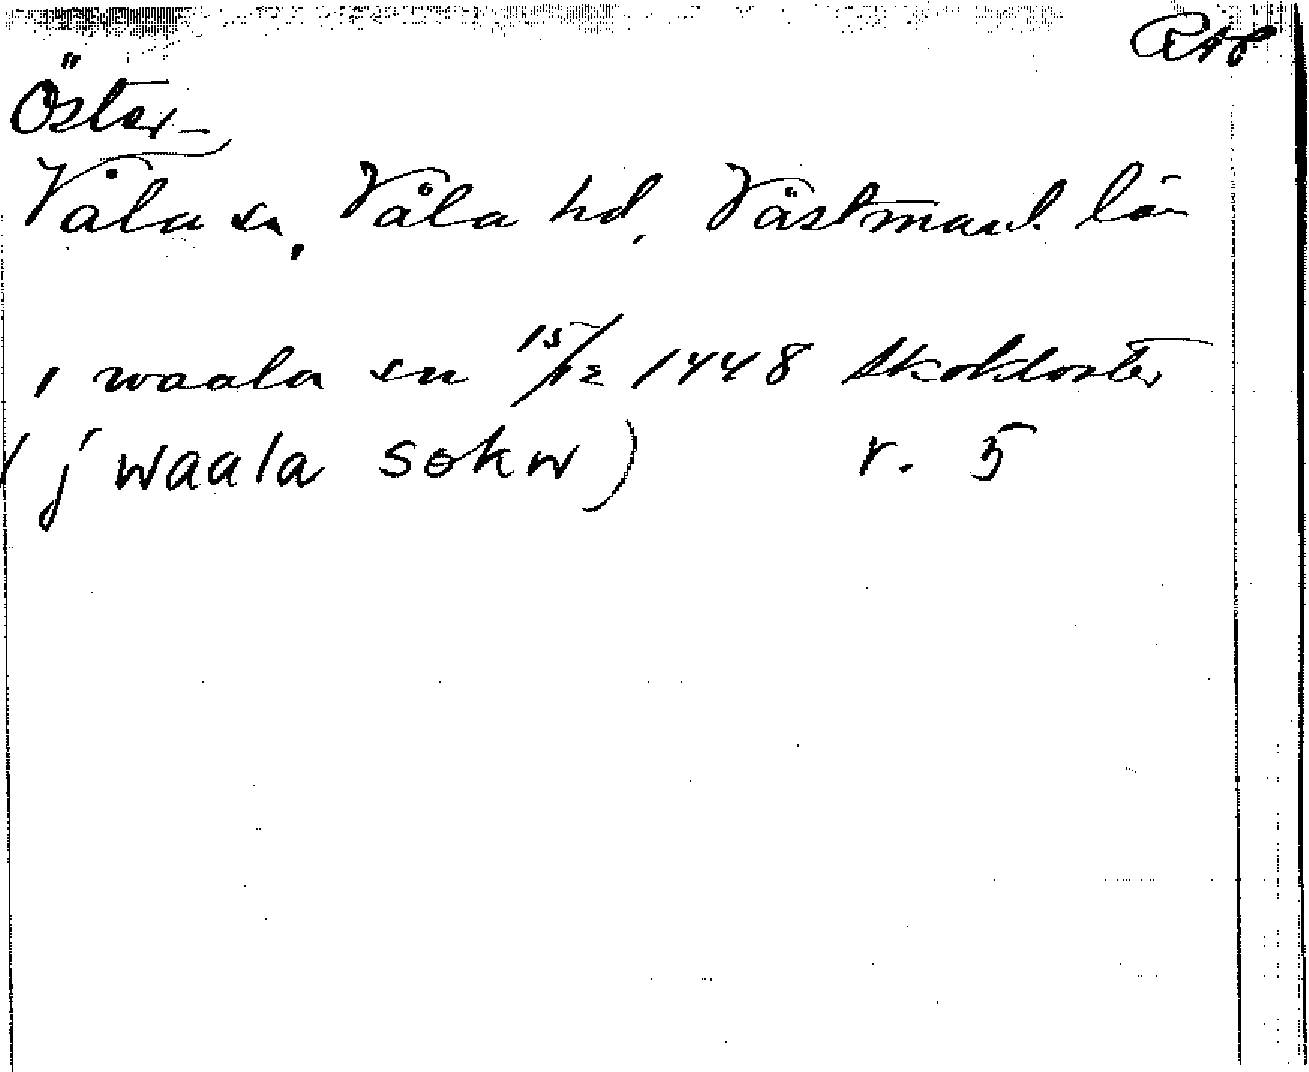 RAp
Öster-
Våla sn, Våla hd, Västmanl. län
i waala sn 15/12 1448 Skokloster
(j waala sokn) r. 5